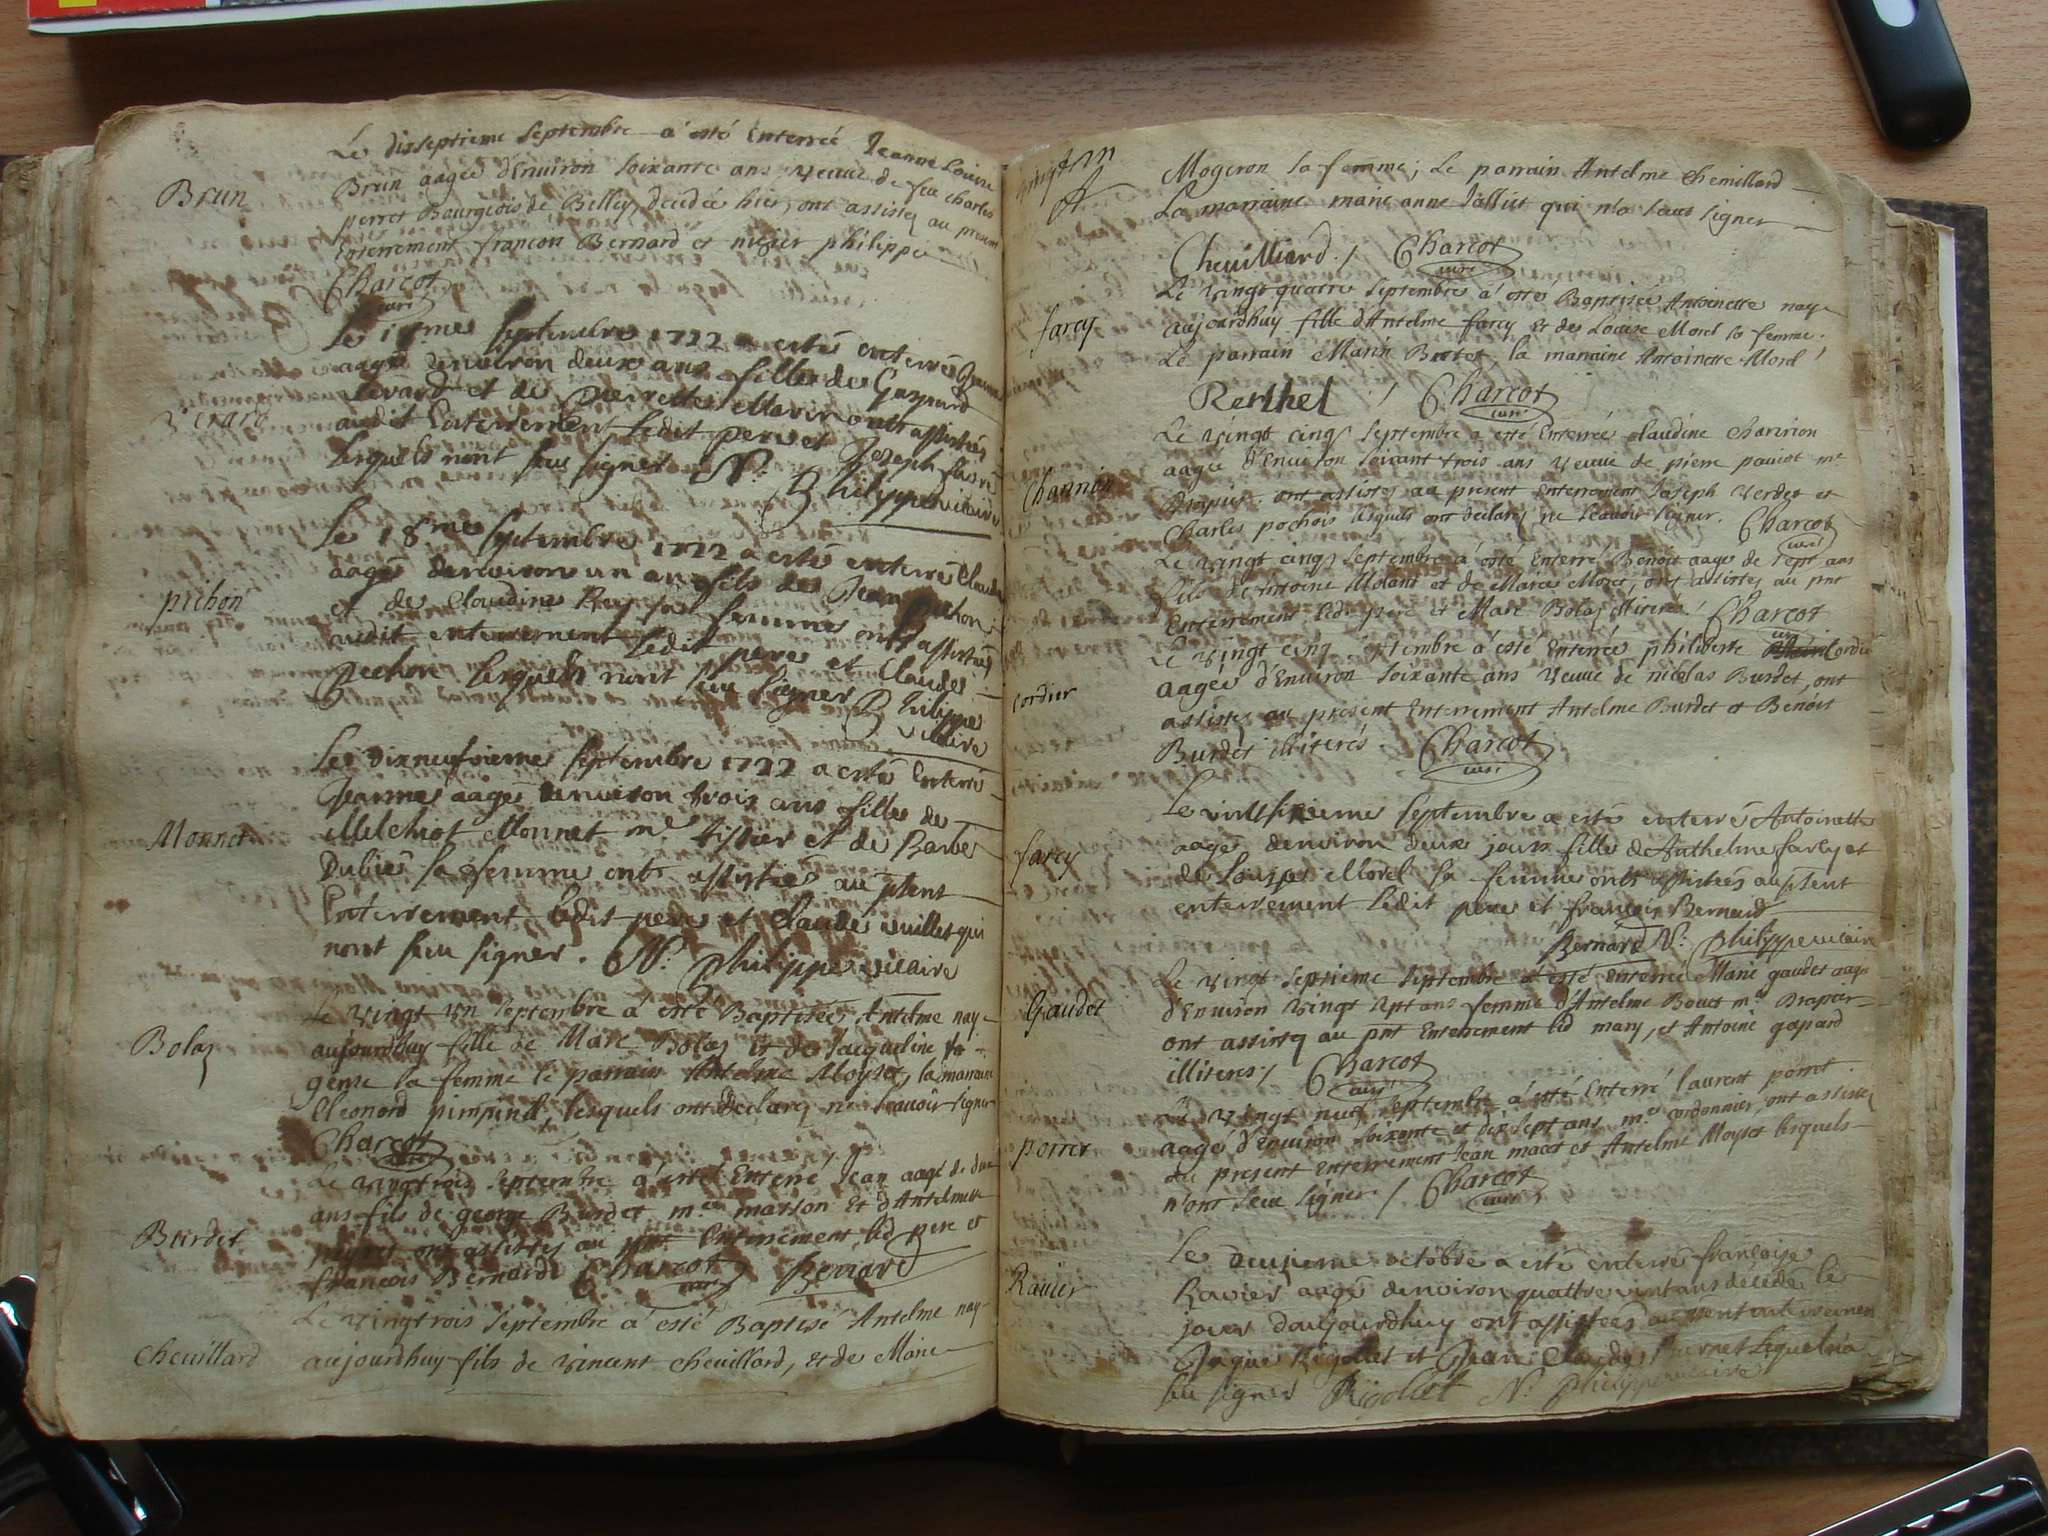 Le dixseptieme Septembre a esté Enterrée Jeanne Louise
Brun
Brun aagée d'Environ soixante ans veuve de feu charles
perret Bourgeois de Belley, decedée hier, ont assistez au present
enterrement françois Bernard et nizier philippe
Charcot
curé
Le septembre 1722 a esté enterré
aagé denviron deux ans fille de Gaspard
et de pierrette ont assistées
audit Enterrement ledit pere et Jozeph
lesquels nont sceu signer N.
Philippe vicaire
Le 18me septembre 1722 a esté enterré Claude
aagé denviron un an fils de Jean pichon
pichon
et de Claudine Rey sa femme ont assistées
audit enterrement ledit pere et Claude
pichon lesquels nont sceu signer
Philippe
vicaire
Le dixneufvieme septembre 1722 a esté Enterré
Jeanne aagé denviron trois ans fille de
Monnet
Melchiot Monnet me tissier et de Barbe
Dubier sa femme ont assistées au psent
Enterrement ledit pere et Claude vuillet qui
nont sceu signer. N. Philippe vicaire
Le vingt un septembre a esté Baptisée Antelme nay
Bolaz
aujourdhuy fille de Marc Bolaz et de Jacqueline
sa femme le parrain Antelme Moyret, la marraine
Cleonard lesquels ont Declarez ne scavoir signer
Charcot
curé
Le vingtrois septembre a esté Enterré Jean aagé de deux
ans fils de george Burdet me masson Et d'Antelmette
Burdet
ont assistez au pnt Enterrement led pere et
françois Bernard Charcot Bernard
curé
Le vingtrois septembre a esté Baptisé Antelme nay
Cheuillard
aujourdhuy fils de vincent cheuillard, et de Marie
Mogeron sa femme; Le parrain Antelme cheuillard
La marraine marie anne Jallier qui n'a sceus signer
Cheuilliard / Charcot
curé
Le vingt quatre septembre a esté Baptisée Antoinette nay
farcy
aujourdhuy fille d'Antelme farcy et de Louise Morel sa femme.
Le parrain Marin la marraine Antoinette Morel
Berthet / Charcot
curé
Le vingt cinq septembre a esté Enterrée claudine
aagée d'Environ soixant trois ans veuve de pierre me
ont assistez au present enterrement Joseph Verdet et
Charles pochois lesquels ont declarez ne scavoir signer. Charcot
curé
Le vingt cinq septembre a esté Enterré Benoit aagé de sept ans
fils d'Antoine Molant et de Marie Moret, ont assistez au pnt
Enterrement led pere et Marc Bolaz illiteré / Charcot
curé
Le vingt cinq septembre a esté Enterrée philiberte Cordier
cordier
aagée d'Environ soixante ans veuve de nicolas Burdet, ont
assistez au present Enterrement Antelme Burdet et Benoit
Burdet illiterés Charcot
curé
Le vintsixieme septembre a esté enterré Antoinette
farcy
aagée denviron deux jours fille de Anthelme farcy et
de Louise Morel sa femme ont assistées au psent
enterrement ledit pere et françois Bernard
Bernard N. Philippe vicaire
Le vingt septieme septembre a esté enterrée Marie gaudet aagée
Gaudet
d'Environ vingt sept ans femme d'Antelme Bouet me Drapier
ont assistez au pnt Enterrement led mary, et Antoine gapard
illiteres / Charcot
curé
Le vingt neuf septembre a esté Enterré laurent porret
porret
aagé d'Environ soixante et dix sept ans me cordonnier, ont assistez
au present Enterrement Jean macet et Antelme Moyret lesquels
n'ont sceu signer / Charcot
curé
Le deuxieme octobre a esté enterré françoise
Rauier
Ravier aagé denviron quattre vint ans décédée le
jour daujourdhuy ont assistées au psent enterrement
Jaque Rigollet et Jean Claude Burnet lequel na
sceu signer Rigollet N. Philippe vicaire